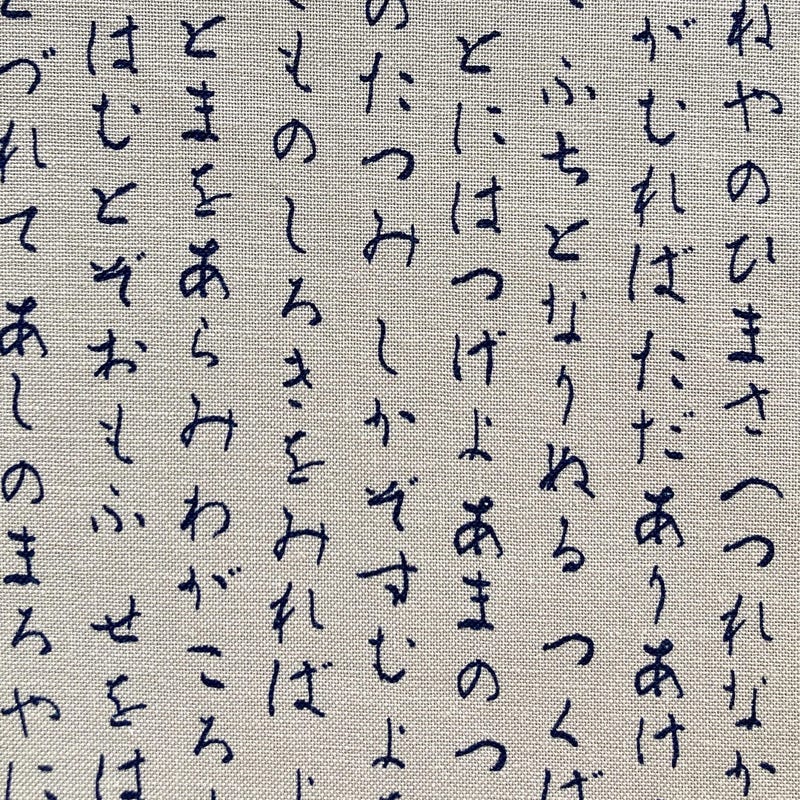 ねやのひまさへつれなか
がむればただありあけ
ふちとなりぬる つくば
とにはつげよあまのつ
のたつみ しかぞすむよ
ものしろきをみれば よ
とまをあらみわがころ
はむとぞおもふ せをは
づれてあしのまろやに